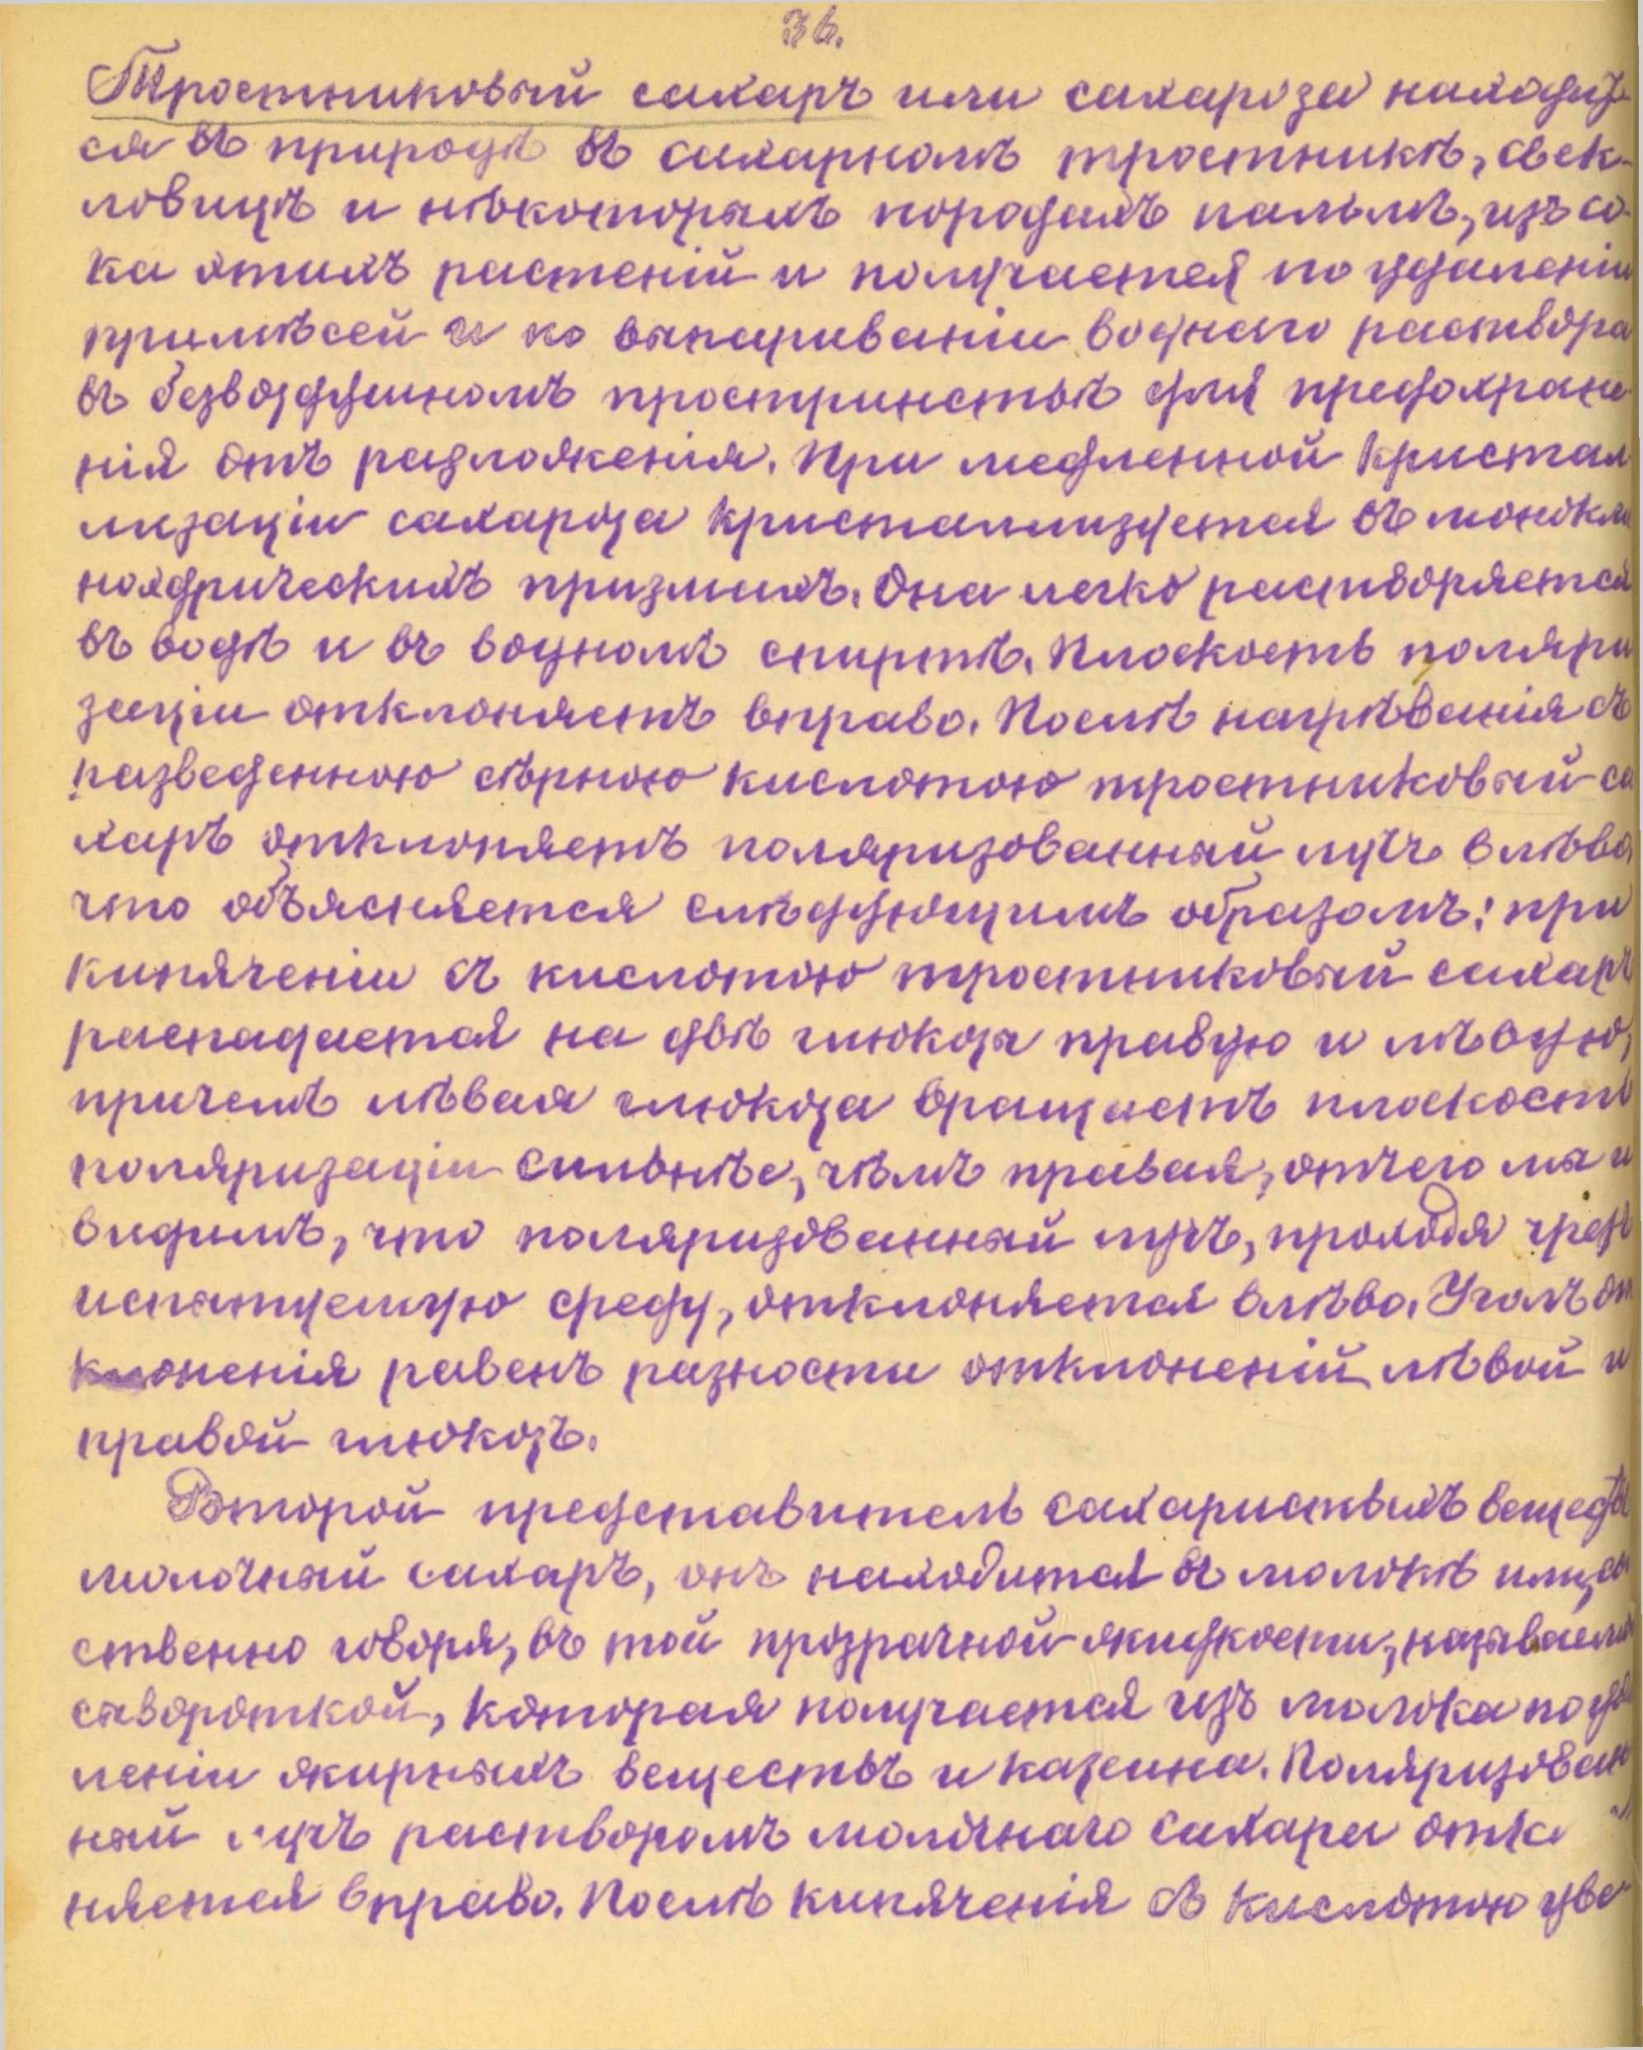 36.
Тростниковый сахаръ или сахароза находит-
ся въ природѣ въ сахарномъ тростникѣ, свек-
ловицѣ и нѣкоторыхъ породахъ пальмъ, изъ со-
ка этихъ растеній и получается по удаленіи
примѣсей и по выпариваніи воднаго раствора
въ безвоздушномъ пространствѣ для предохране-
нія отъ разложенія. При медленной кристал-
лизаціи сахароза кристаллизуется въ монокли
ноэдрическихъ призмахъ. Она легко растворяется
въ водѣ и въ водномъ спиртѣ. Плоскость поляри
заціи отклоняетъ вправо. Послѣ нагрѣванія съ
разведенною сѣрною кислотою тростниковый са
харъ отклоняетъ поляризованный лучъ влѣво,
что объясняется слѣдующимъ образомъ: при
кипяченіи съ кислотою тростниковый сахаръ
распадается на двѣ глюкозы правую и лѣвую,
причемъ лѣвая глюкоза вращаетъ плоскость
поляризаціи сильнѣе, чѣмъ правая, отчего мы и
видимъ, что поляризованный лучъ, проходя чрезъ
испытуемую среду, отклоняется влѣво. Уголъ от
клоненія равенъ разности отклоненій лѣвой и
правой глюкозъ.
Второй представитель сахаристыхъ веществъ
молочный сахаръ, онъ находится въ молокѣ или, со
ственно говоря, въ той прозрачной жидкости, называем
сывороткой, которая получается изъ молока по уда
леніи жирныхъ веществъ и казеина. Поляризован
ный лучъ растворомъ молочнаго сахара откл
няется вправо. Послѣ кипяченія съ кислотою уве